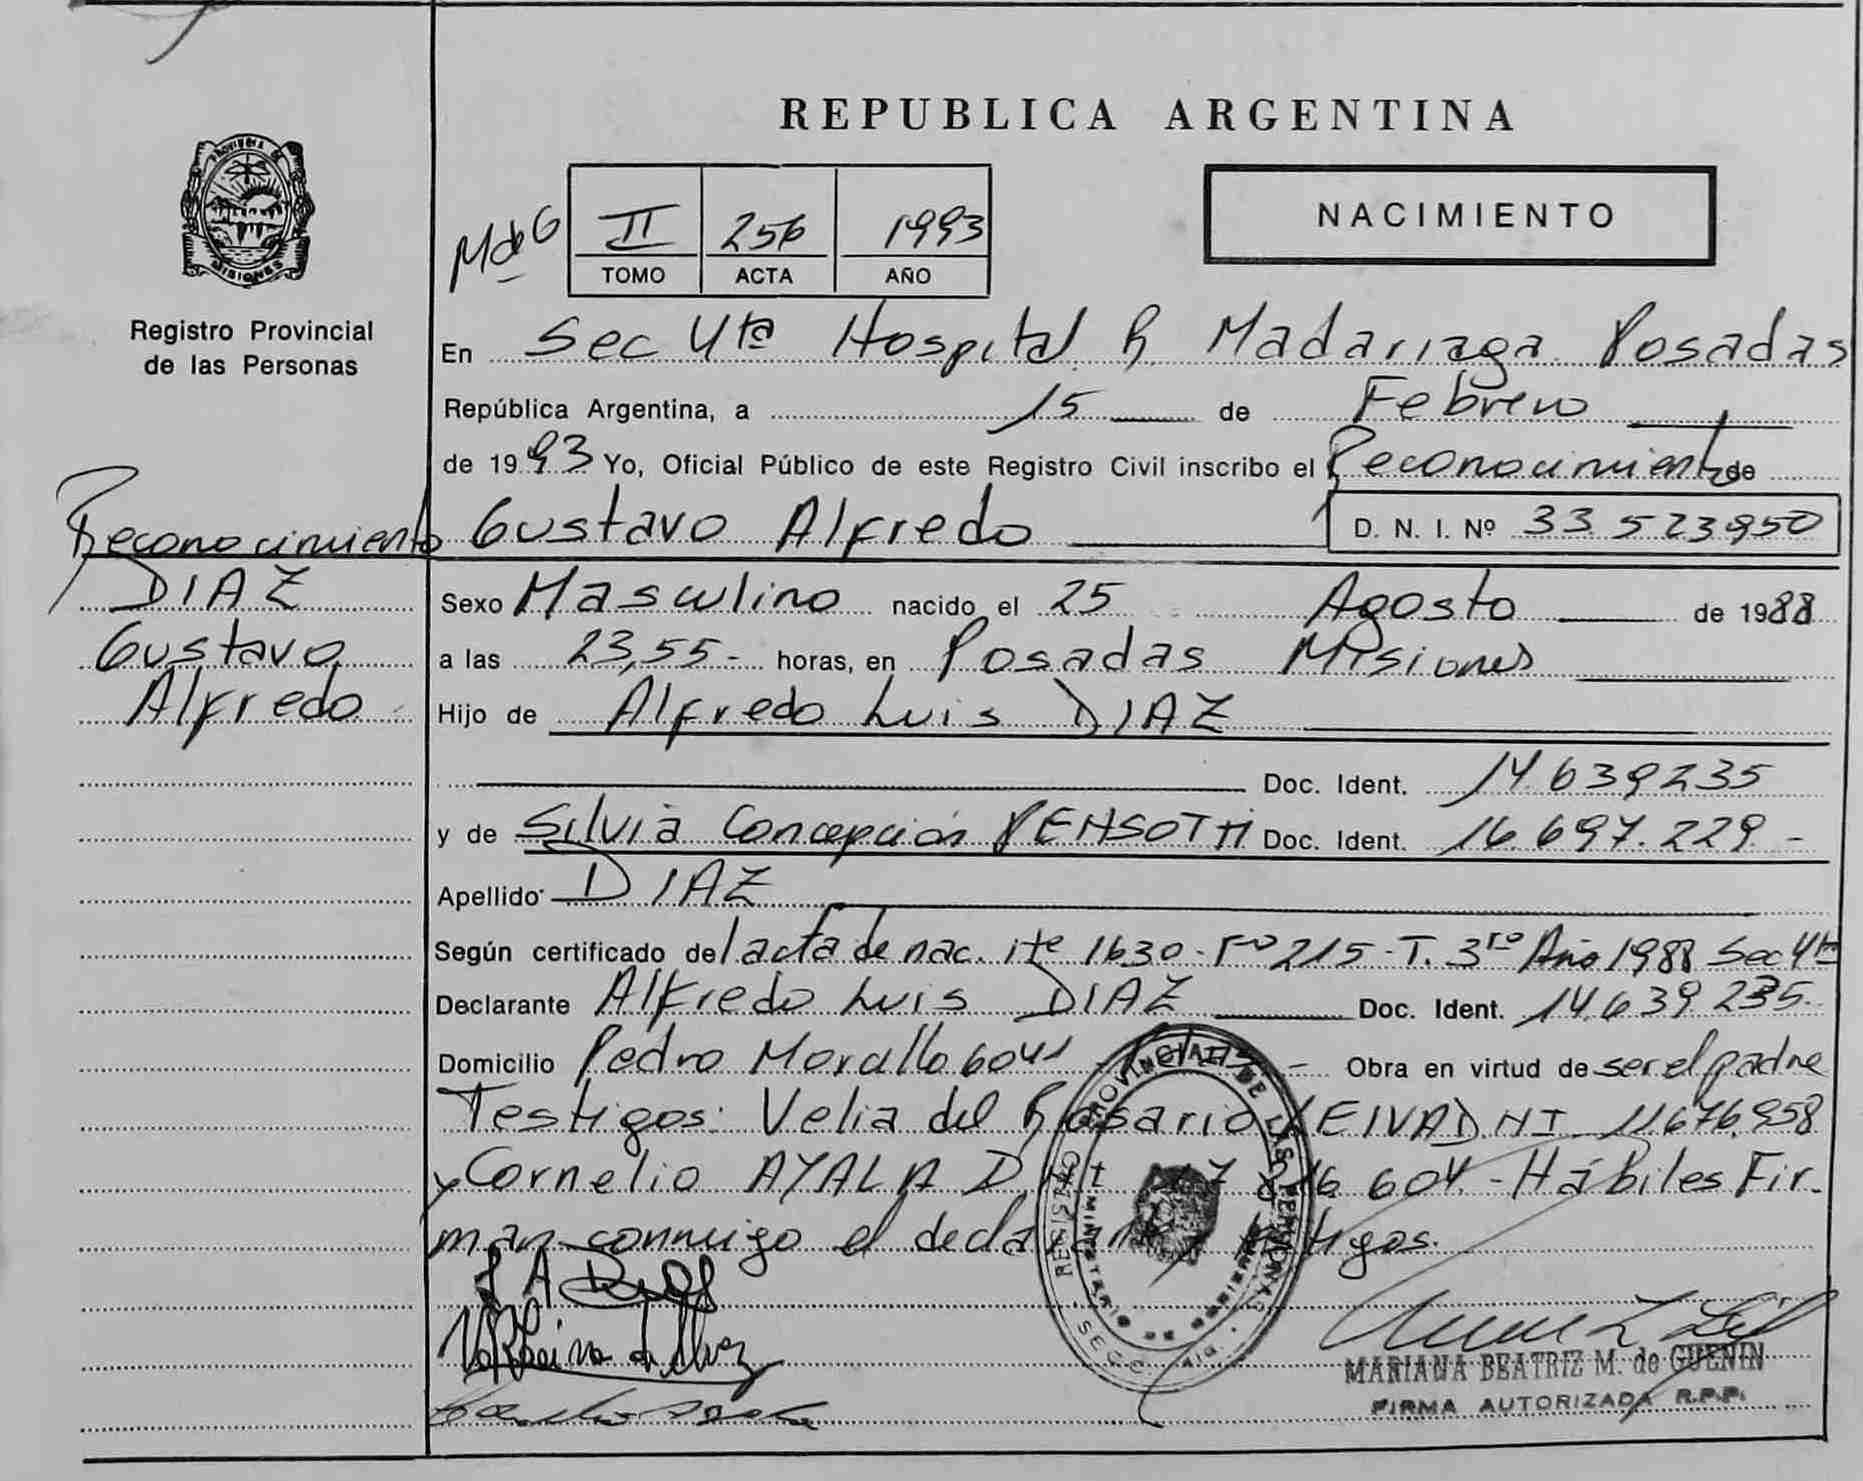 REPUBLICA ARGENTINA
PROVINCIA DE
MISIONES
Registro Provincial
de las Personas
MdeG
II 256 1993
TOMO ACTA AÑO
NACIMIENTO
En Sec 4ta Hospital R. Madariaga Posadas
República Argentina, a 15 de Febrero
de 1993 Yo, Oficial Público de este Registro Civil inscribo el Reconocimiento de
Gustavo Alfredo D. N. I. Nº 33.523950
Reconocimiento
DIAZ
Gustavo
Alfredo
Sexo Masculino nacido el 25 Agosto de 1988
a las 23,55- horas, en Posadas Misiones
Hijo de Alfredo Luis DIAZ
Doc. Ident. 14.639235
y de Silvia Concepción PENSOTTI Doc. Ident. 16.697.229.-
Apellido DIAZ
Según certificado del acta de nac. 1630-Fº 215-T. 3ro Año 1988 Sec 4ta
Declarante Alfredo Luis DIAZ Doc. Ident. 14.639 235.
Domicilio Pedro 6041 - Obra en virtud de ser el padre
Testigos: Velia del Rosario LEIVA DNI 11676.958
y Cornelio AYALA 604.-Hábiles Fir-
man conmigo el declarante y testigos.
REGISTRO PROVINCIAL DE LAS PERSONAS
MINISTERIO DE
MARIANA BEATRIZ M. de GUENIN
FIRMA AUTORIZADA R.P.P.